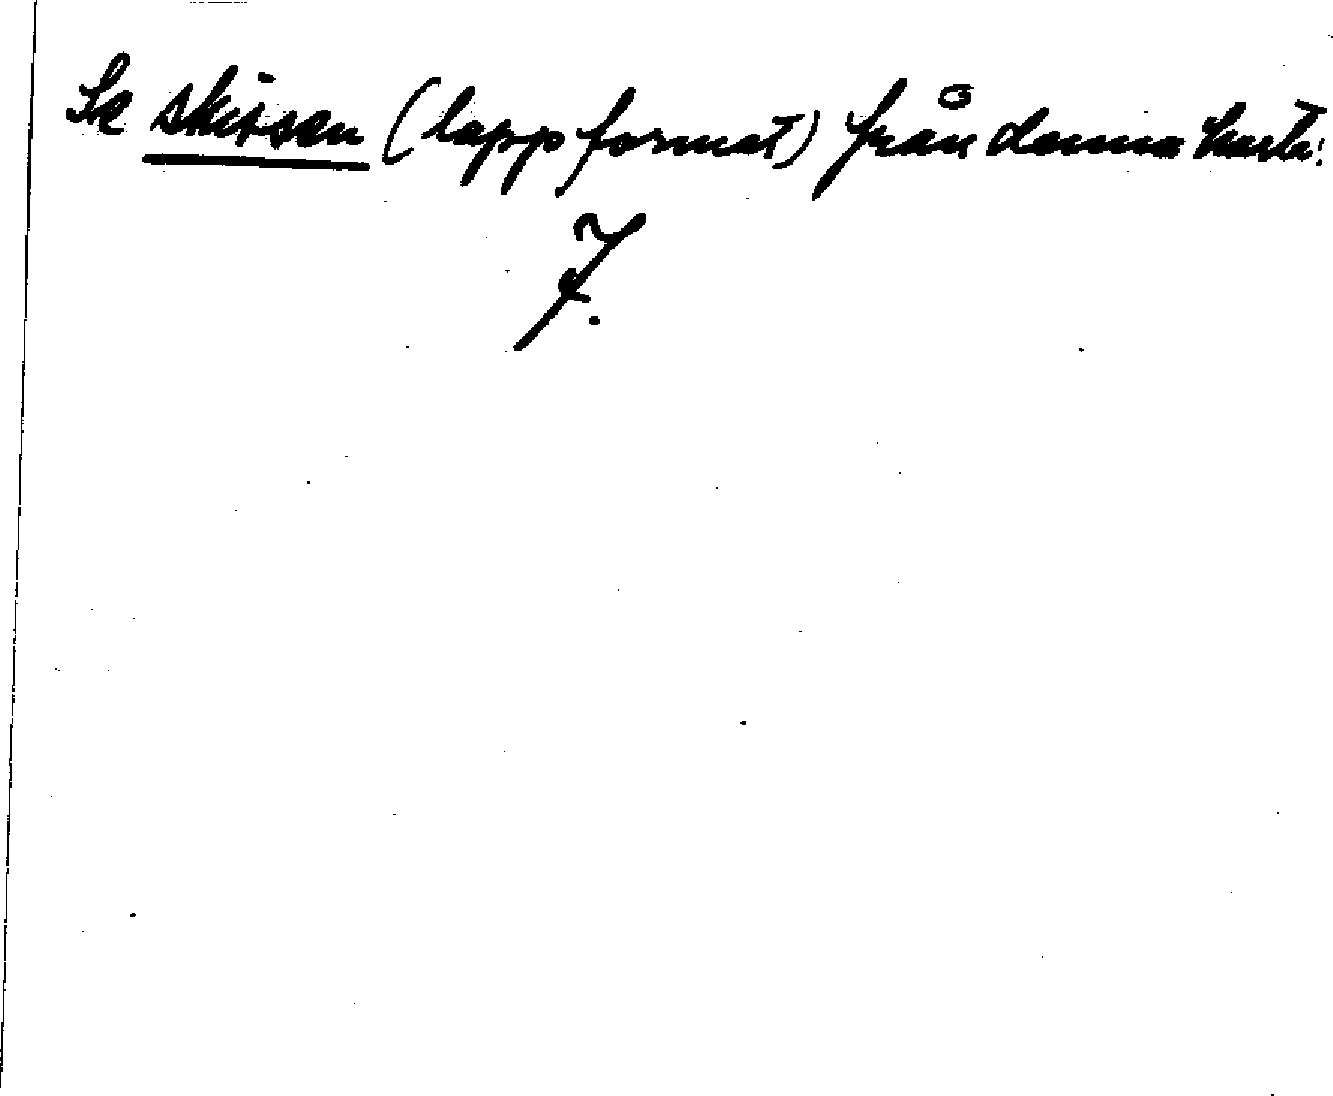 Se skissen (lappformat) från denna karta!
7.